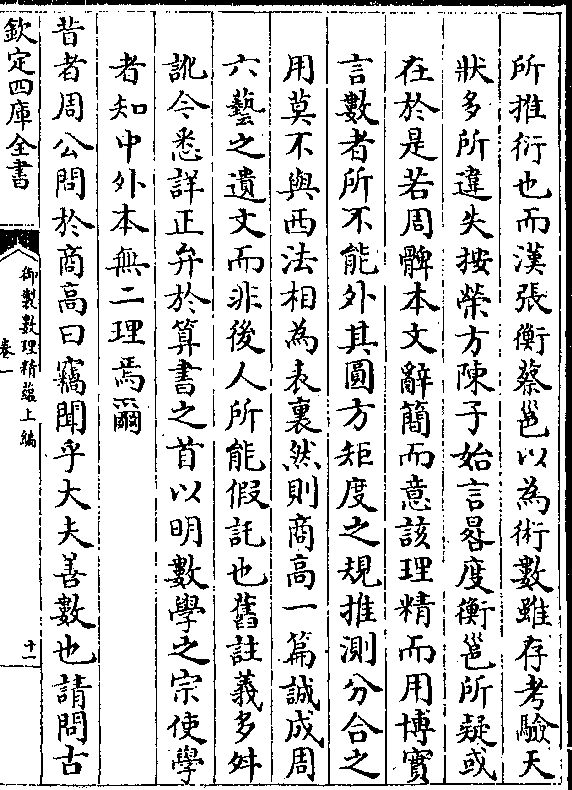 所推衍也而漢張衡蔡邕以為術數雖存考驗天
狀多所違失按榮方陳子始言晷度衡邕所疑或
在於是若周髀本文辭簡而意該理精而用博實
言數者所不能外其圓方矩度之規推測分合之
用莫不與西法相為表裏然則商高一篇誠成周
六藝之遺文而非後人所能假託也舊註義多舛
訛今悉詳正弁於算書之首以明數學之宗使學
者知中外本無二理焉爾
昔者周公問於商高曰竊聞乎大夫善數也請問古
欽定四庫全書
御製數理精蘊上編
卷一
十一